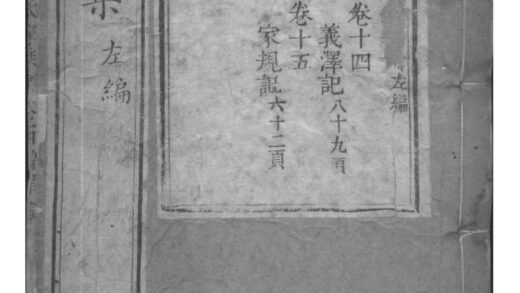 左編
卷十四
義澤記八十九頁
卷十五
家規記六十二頁
左編